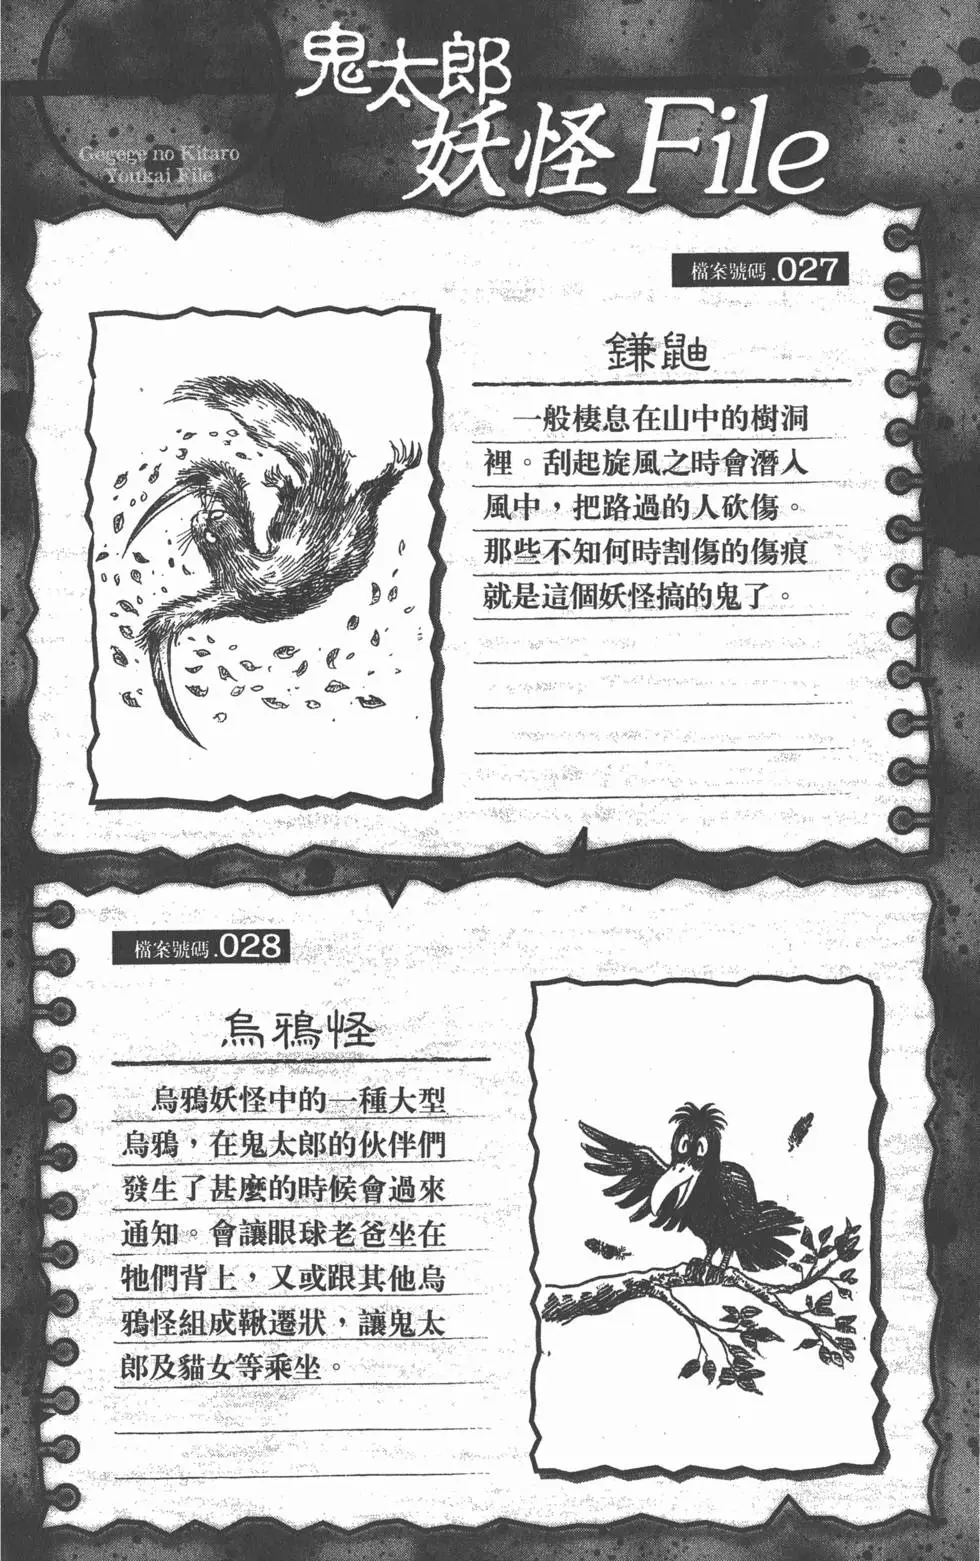 鬼太郎
妖怪File
Gegege no Kitaro
Youkai File
檔案號碼.027
鎌鼬
一般棲息在山中的樹洞
裡。刮起旋風之時會潛入
風中，把路過的人砍傷。
那些不知何時割傷的傷痕
就是這個妖怪搞的鬼了。
檔案號碼.028
烏鴉怪
烏鴉妖怪中的一種大型
烏鴉，在鬼太郎的伙伴們
發生了甚麼的時候會過來
通知。會讓眼球老爸坐在
牠們背上，又或跟其他烏
鴉怪組成鞦遷狀，讓鬼太
郎及貓女等乘坐。